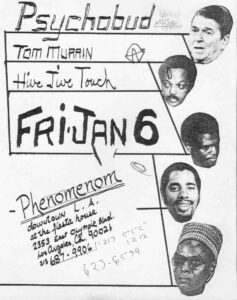 Psychobud
Tom Murrin
Hive Jive Touch
FRI·JAN 6
-Phenomenom
downtown L.A.
at the fiesta house
2353 East Olympic Blvd.
Los Angeles, CA 90021
213 687-9906
1-213 555
1212
623-6534